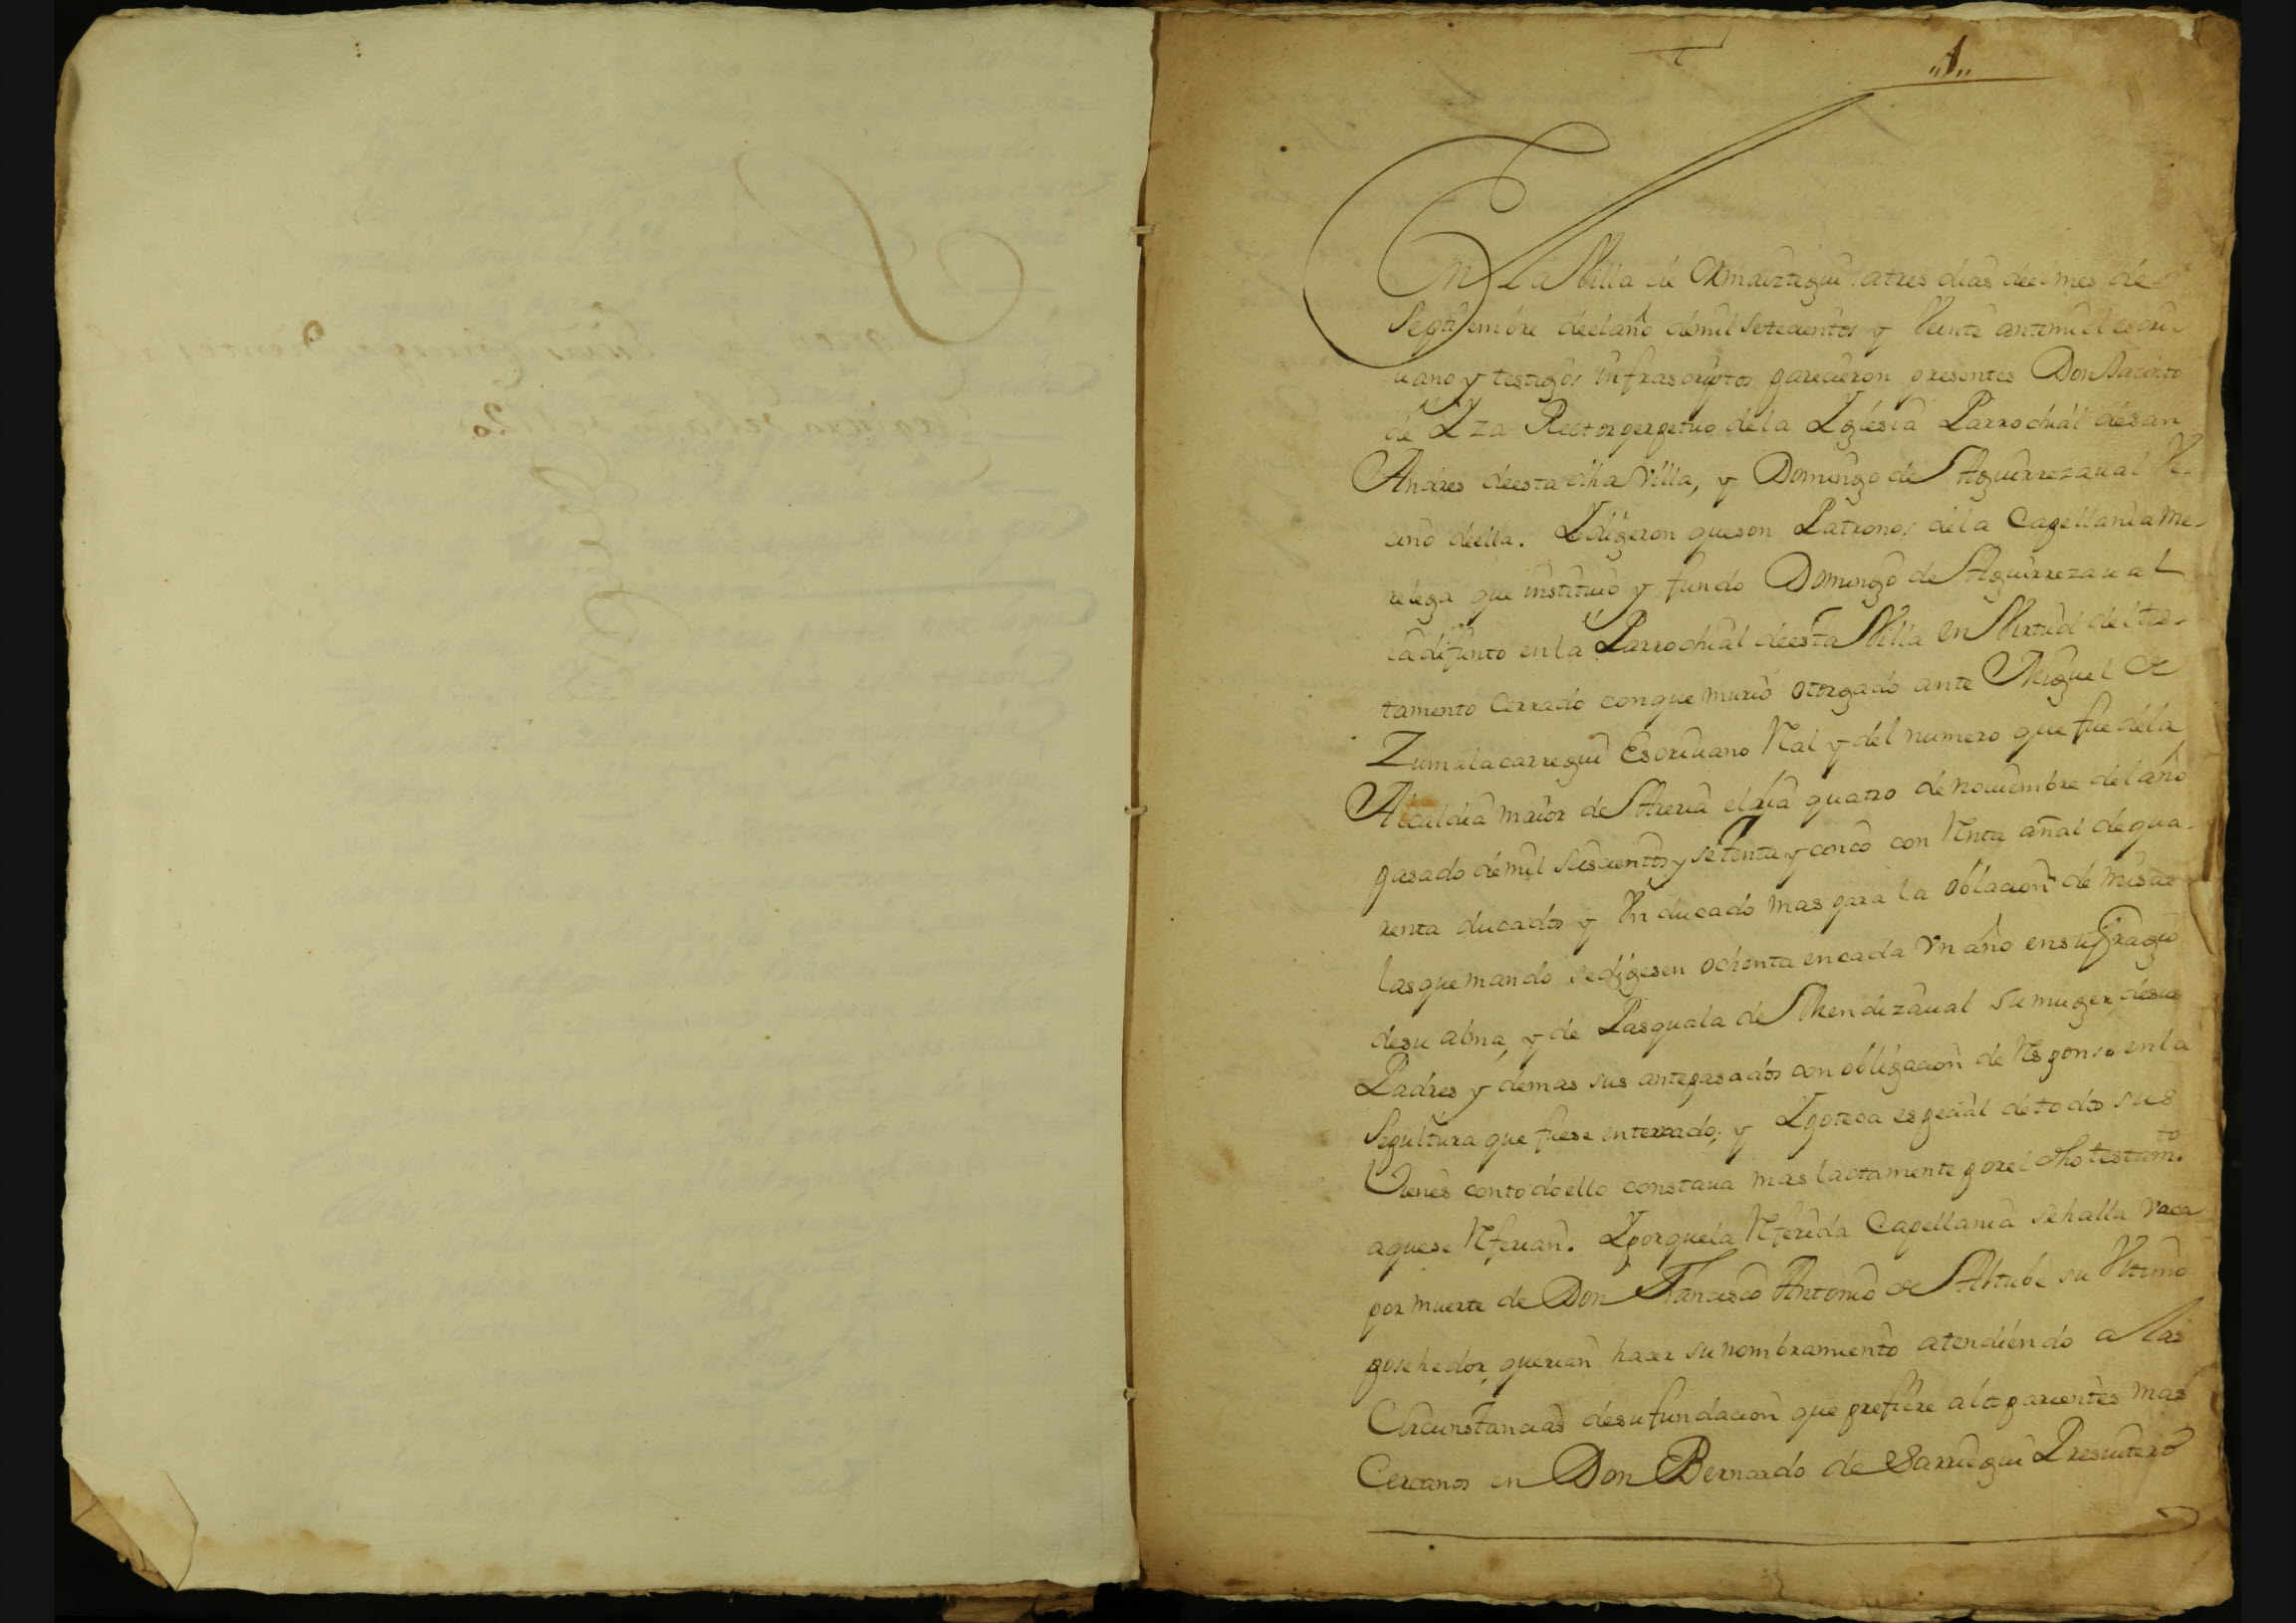 „1„
En La Villa de Ormaiztegui a tres dias de el mes de
Septiembre de el año de mil Setecientos y Veinte ante mi el escri-
uano y testigos infrascriptos parecieron presentes Don Jacinto
de Yza Rector perpetuo de la Yglesia Parrochial de san
Andres de esta dha Villa, y Domingo de Aguirrezaual Ve-
cino de ella. Y digeron que son Patronos de la Capellania me-
relega que instituio y fundo Domingo de Aguirrezaual
ia difunto en la Parrochial de esta Villa en Virtud del tes-
tamento Cerrado con que murio otorgado ante Miguel de
Zumalacarregui Escriuano Real y del numero que fue de la
Alcaldia maior de Areria el dia quatro de nouiembre del año
pasado de mil Seiscientos y setenta y cinco con Renta añal de qua-
renta ducados y Un ducado mas para la oblacion de misas
las que mando se digesen ochenta en cada Vn año en sufragio
de su alma, y de Pasquala de Mendizaual su muger, de sus
Padres y demas sus antepasados con obligacion de Responso en la
Sepultura que fuese enterrado; y Ypoteca especial de todos sus
Vienes con todo ello constaua mas lactamente por el dho testamto.
a que se Referian. Y porque la Referida Capellania se halla vaca
por muerte de Don Francisco Antonio de Altube su Vltimo
posehedor, querian hacer su nombramiento atendiendo a las
Circunstancias de su fundacion que prefiere a los parientes mas
Cercanos en Don Bernardo de Sarriegui Presuitero